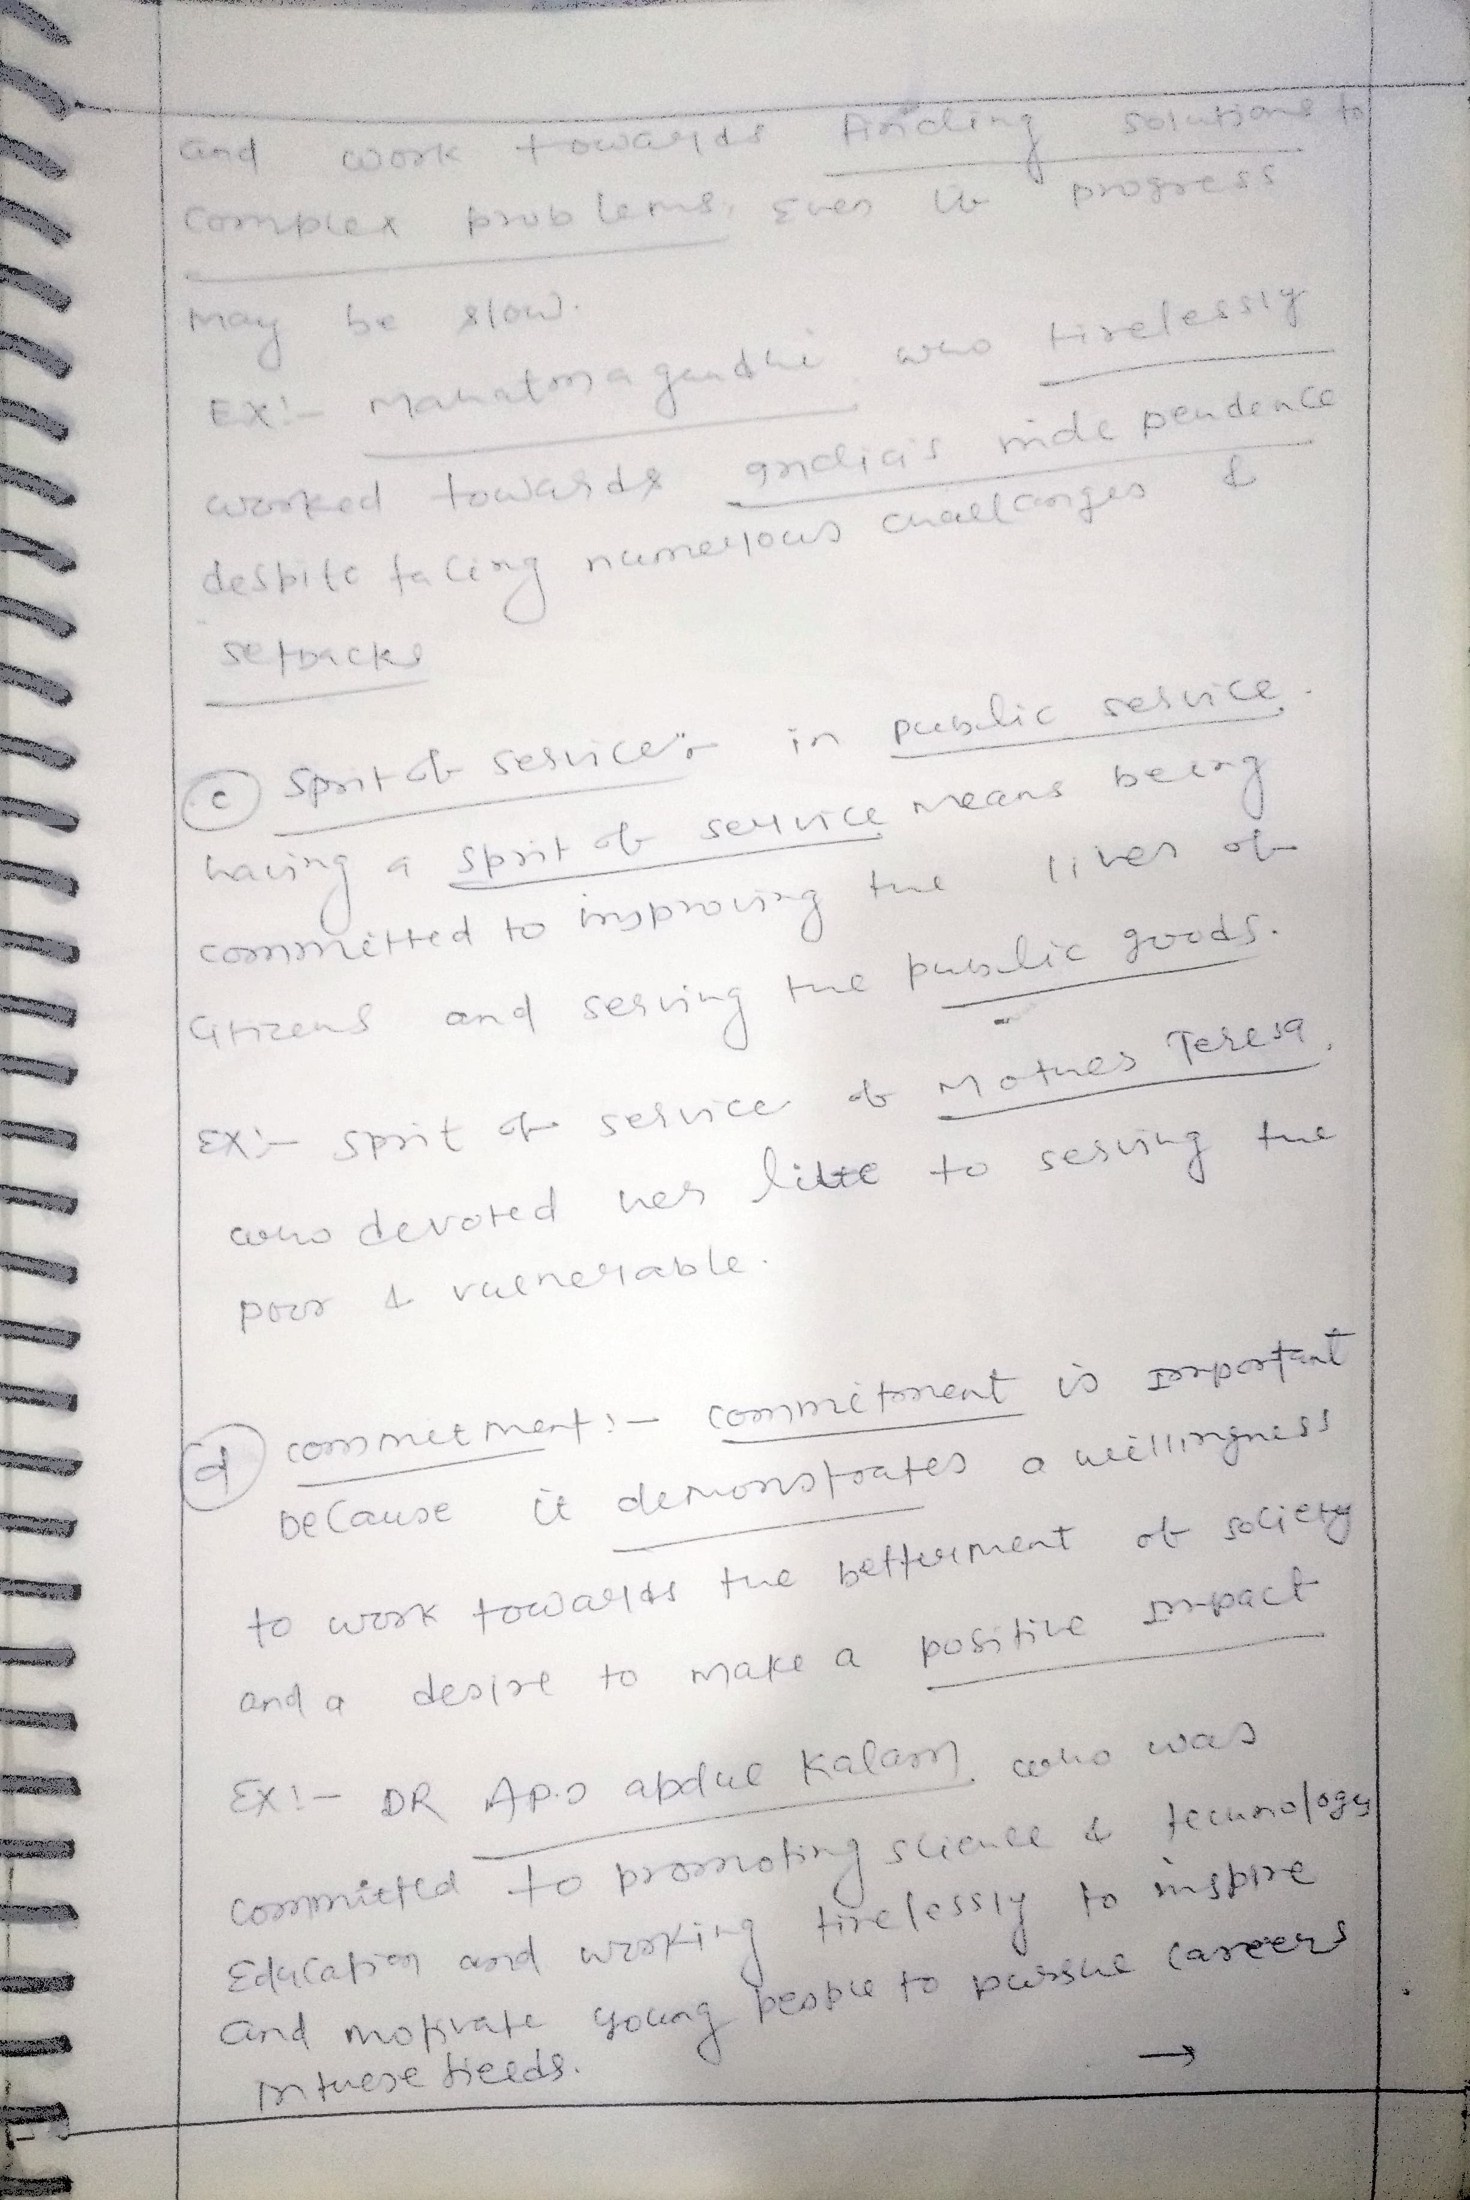 and work towards finding solutions to
complex problems, even if progress
may be slow.
EX:- Mahatma gandhi who tirelessly
worked towards India's independence
despite facing numerous challanges &
setbacks
(c) Sprit of service:- in public service.
having a sprit of service means being
committed to improving the lives of
Citizens and serving the public goods.
EX:- sprit of service of Mother Teresa,
who devoted her life to serving the
poor & vulnerable.
(d) commitment:- commitment is important
because it demonstrates a willingness
to work towards the betterment of society
and a desire to make a positive Impact
EX:- DR A.P.J abdul Kalam who was
committed to promoting science & technology
Education and working tirelessly to inspire
and motivate young people to pursue careers
In these fields.
→